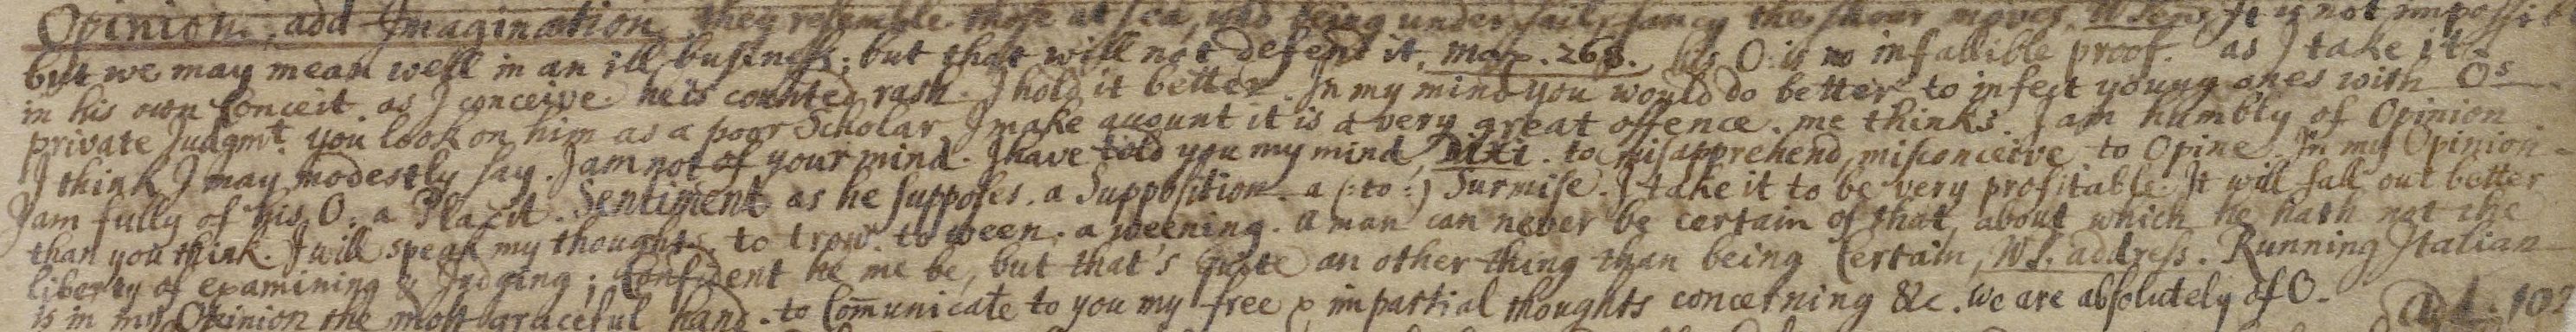 Opinion, add Imagination. they resemble those at sea, who being under sail, fancy the shour moves. It is not impossib
but we may mean well in an ill business; but that will not defend it. mart. 268. his O. is no infallible proof. as I take it
in his own Conceit. as I conceive. he is counted rash. I hold it better. In my mind you would do better to infect young ones with Os
private Judgmt. you look on him as a poor Scholar. I make acount it is a very great offence. me thinks. I am humbly of Opinion
I think I may modestly say. I am not of your mind. I have told you my mind, Dixi. to misapprehend, misconceive. to Opine. In my Opinion
I am fully of his O. a Placit. Sentiment as he supposes. a Supposition. a (: to :) Surmise. I take it to be very profitable. It will fall out better
than you think. I will speak my thoughts. to trow. to ween. a weening. a man can never be certain of that, about which he hath not the
liberty of examining & Judging; Confident he me be, but that's quite an other thing than being Certain, W.S. address. Running Italian
is in my Opinion the most graceful hand. to Com̄unicate to you my free & impartial thoughts concerning &c. we are absolutely of O.